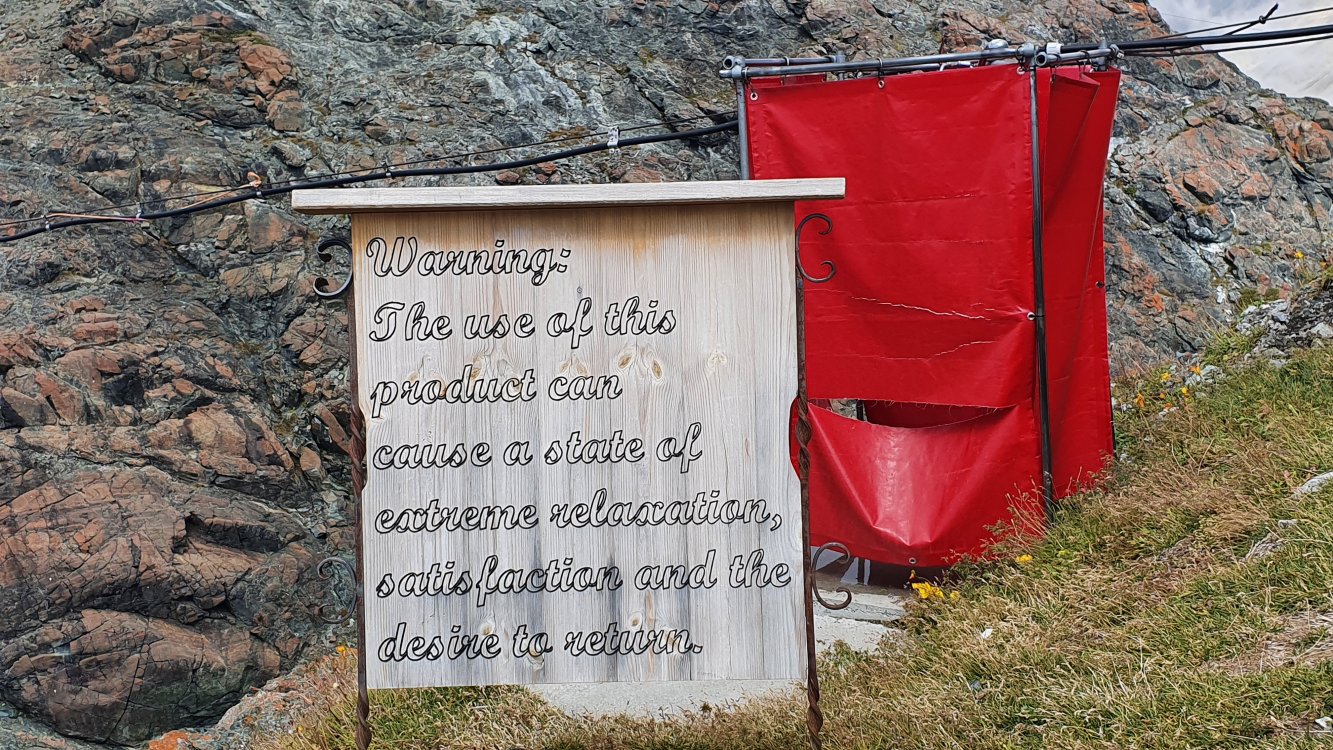 Warning:
The use of this
product can
cause a state of
extreme relaxation,
satisfaction and the
desire to return.